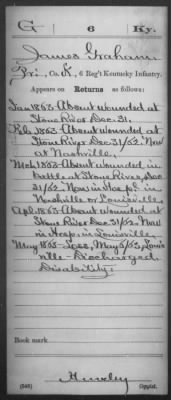 G 6 Ky.
James Graham
Pri., Co. K, 6 Reg't Kentucky Infantry.
Appears on Returns as follows:
Jan 1863 Absent wounded at
Stone River Dec. 31.
Feb. 1863 Absent wounded at
Stone River Dec 31/62. Now
at Nashville.
Mch 1863 Absent wounded in
battle at Stone River, Dec
31/62 - Now in Hospl. in
Nashville or Louisville.
Apl. 1863 Absent wounded at
Stone River Dec 31/62 - Now
in Hosp. in Louisville.
May 1863 - Loss, May 5/63, Louis
ville - Discharged,
Disability.
Book mark
(546)
Copyist.